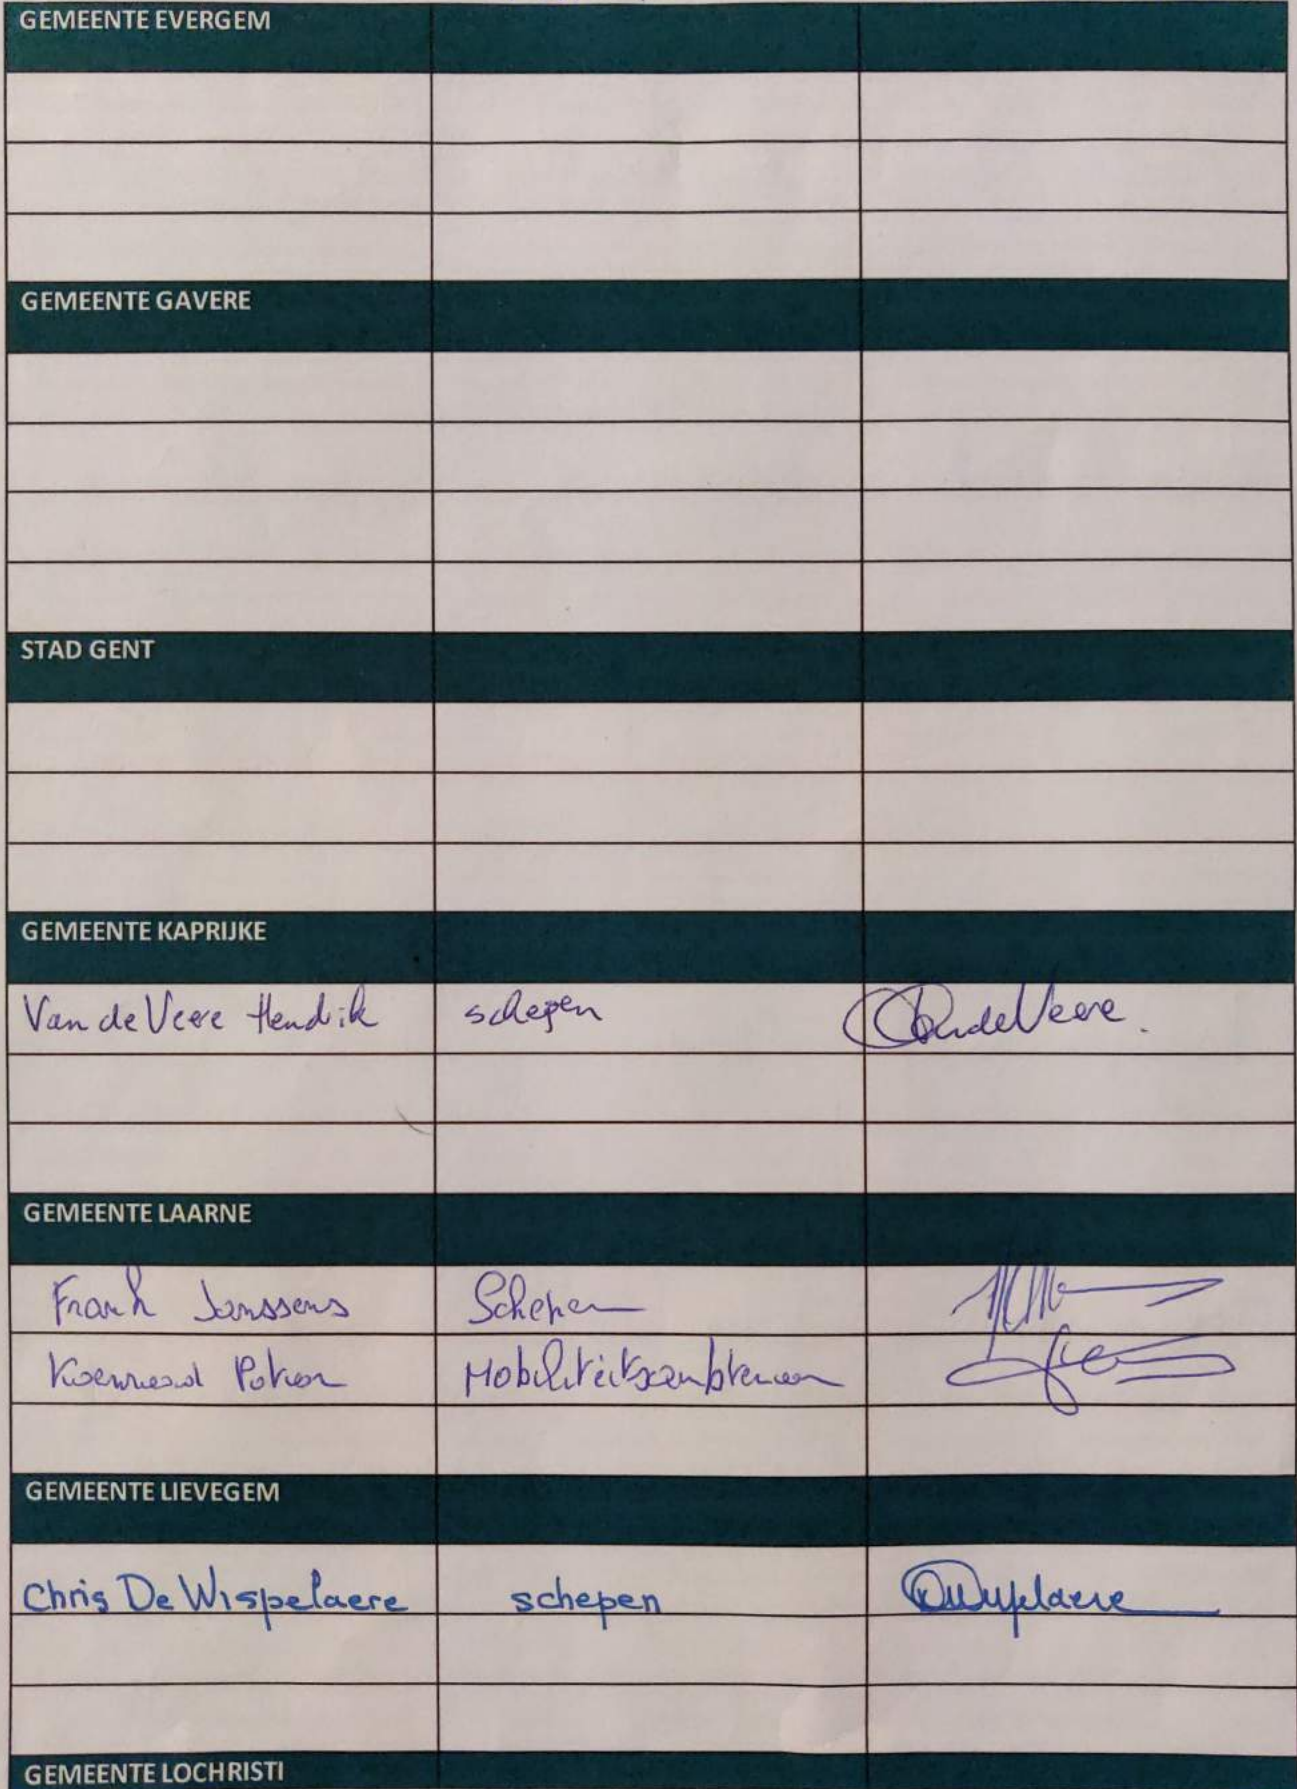 GEMEENTE EVERGEM
GEMEENTE GAVERE
STAD GENT
GEMEENTE KAPRIJKE
Van de Veere Hendrik schepen VandeVeere.
GEMEENTE LAARNE
Frank Janssens Schepen
Koenraad Mobiliteitsambtenaar
GEMEENTE LIEVEGEM
Chris De Wispelaere schepen
GEMEENTE LOCHRISTI